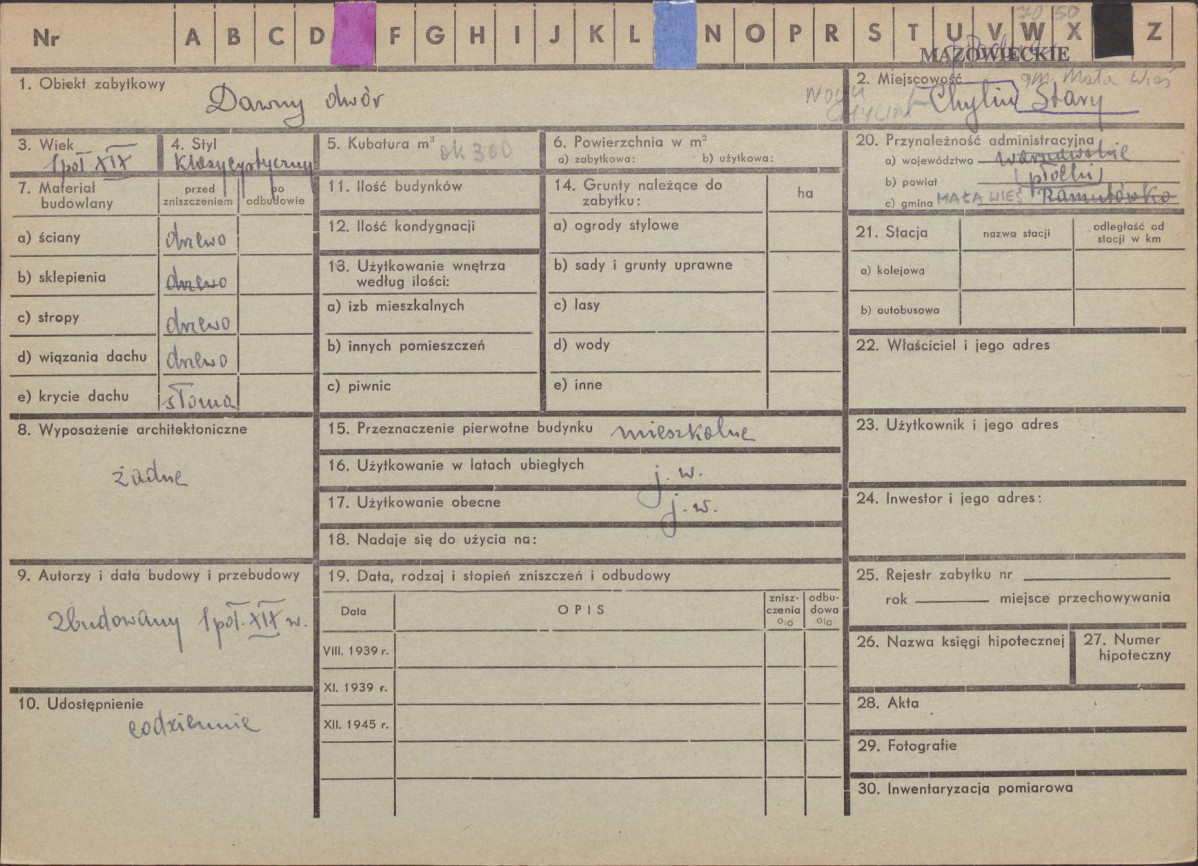 Nr A B C D F G H I J K L N O P R S T U V W X Z
MAZOWIECKIE
1. Obiekt zabytkowy
Dawny dwór
2. Miejscowość
gm. Mała Wieś
Chylin Stary
3. Wiek
1 poł XIX
4. Styl
klasycystyczny
5. Kubatura m³ ok 300
6. Powierzchnia w m²
a) zabytkowa: b) użytkowa:
20. Przynależność administracyjna
a) województwo warszawskie
b) powiat płocki
c) gmina MAŁA WIEŚ Ramutówko
7. Materiał budowlany
przed zniszczeniem
po odbudowie
a) ściany drzewo
b) sklepienia drzewo
c) stropy drzewo
d) wiązania dachu drzewo
e) krycie dachu słoma
11. Ilość budynków
12. Ilość kondygnacji
13. Użytkowanie wnętrza
według ilości:
a) izb mieszkalnych
b) innych pomieszczeń
c) piwnic
14. Grunty należące do
zabytku:
ha
a) ogrody stylowe
b) sady i grunty uprawne
c) lasy
d) wody
e) inne
21. Stacja
nazwa stacji
odległość od
stacji w km
a) kolejowa
b) autobusowa
22. Właściciel i jego adres
8. Wyposażenie architektoniczne
żadne
15. Przeznaczenie pierwotne budynku mieszkalne
16. Użytkowanie w latach ubiegłych j. w.
17. Użytkowanie obecne j. w.
18. Nadaje się do użycia na:
23. Użytkownik i jego adres
24. Inwestor i jego adres:
9. Autorzy i data budowy i przebudowy
zbudowany 1 poł. XIX w.
19. Data, rodzaj i stopień zniszczeń i odbudowy
Data
OPIS
znisz-
czenia
%
odbu-
dowa
%
VIII. 1939 r.
XI. 1939 r.
XII. 1945 r.
25. Rejestr zabytku nr
rok miejsce przechowywania
26. Nazwa księgi hipotecznej
27. Numer
hipoteczny
10. Udostępnienie
codziennie
28. Akta
29. Fotografie
30. Inwentaryzacja pomiarowa